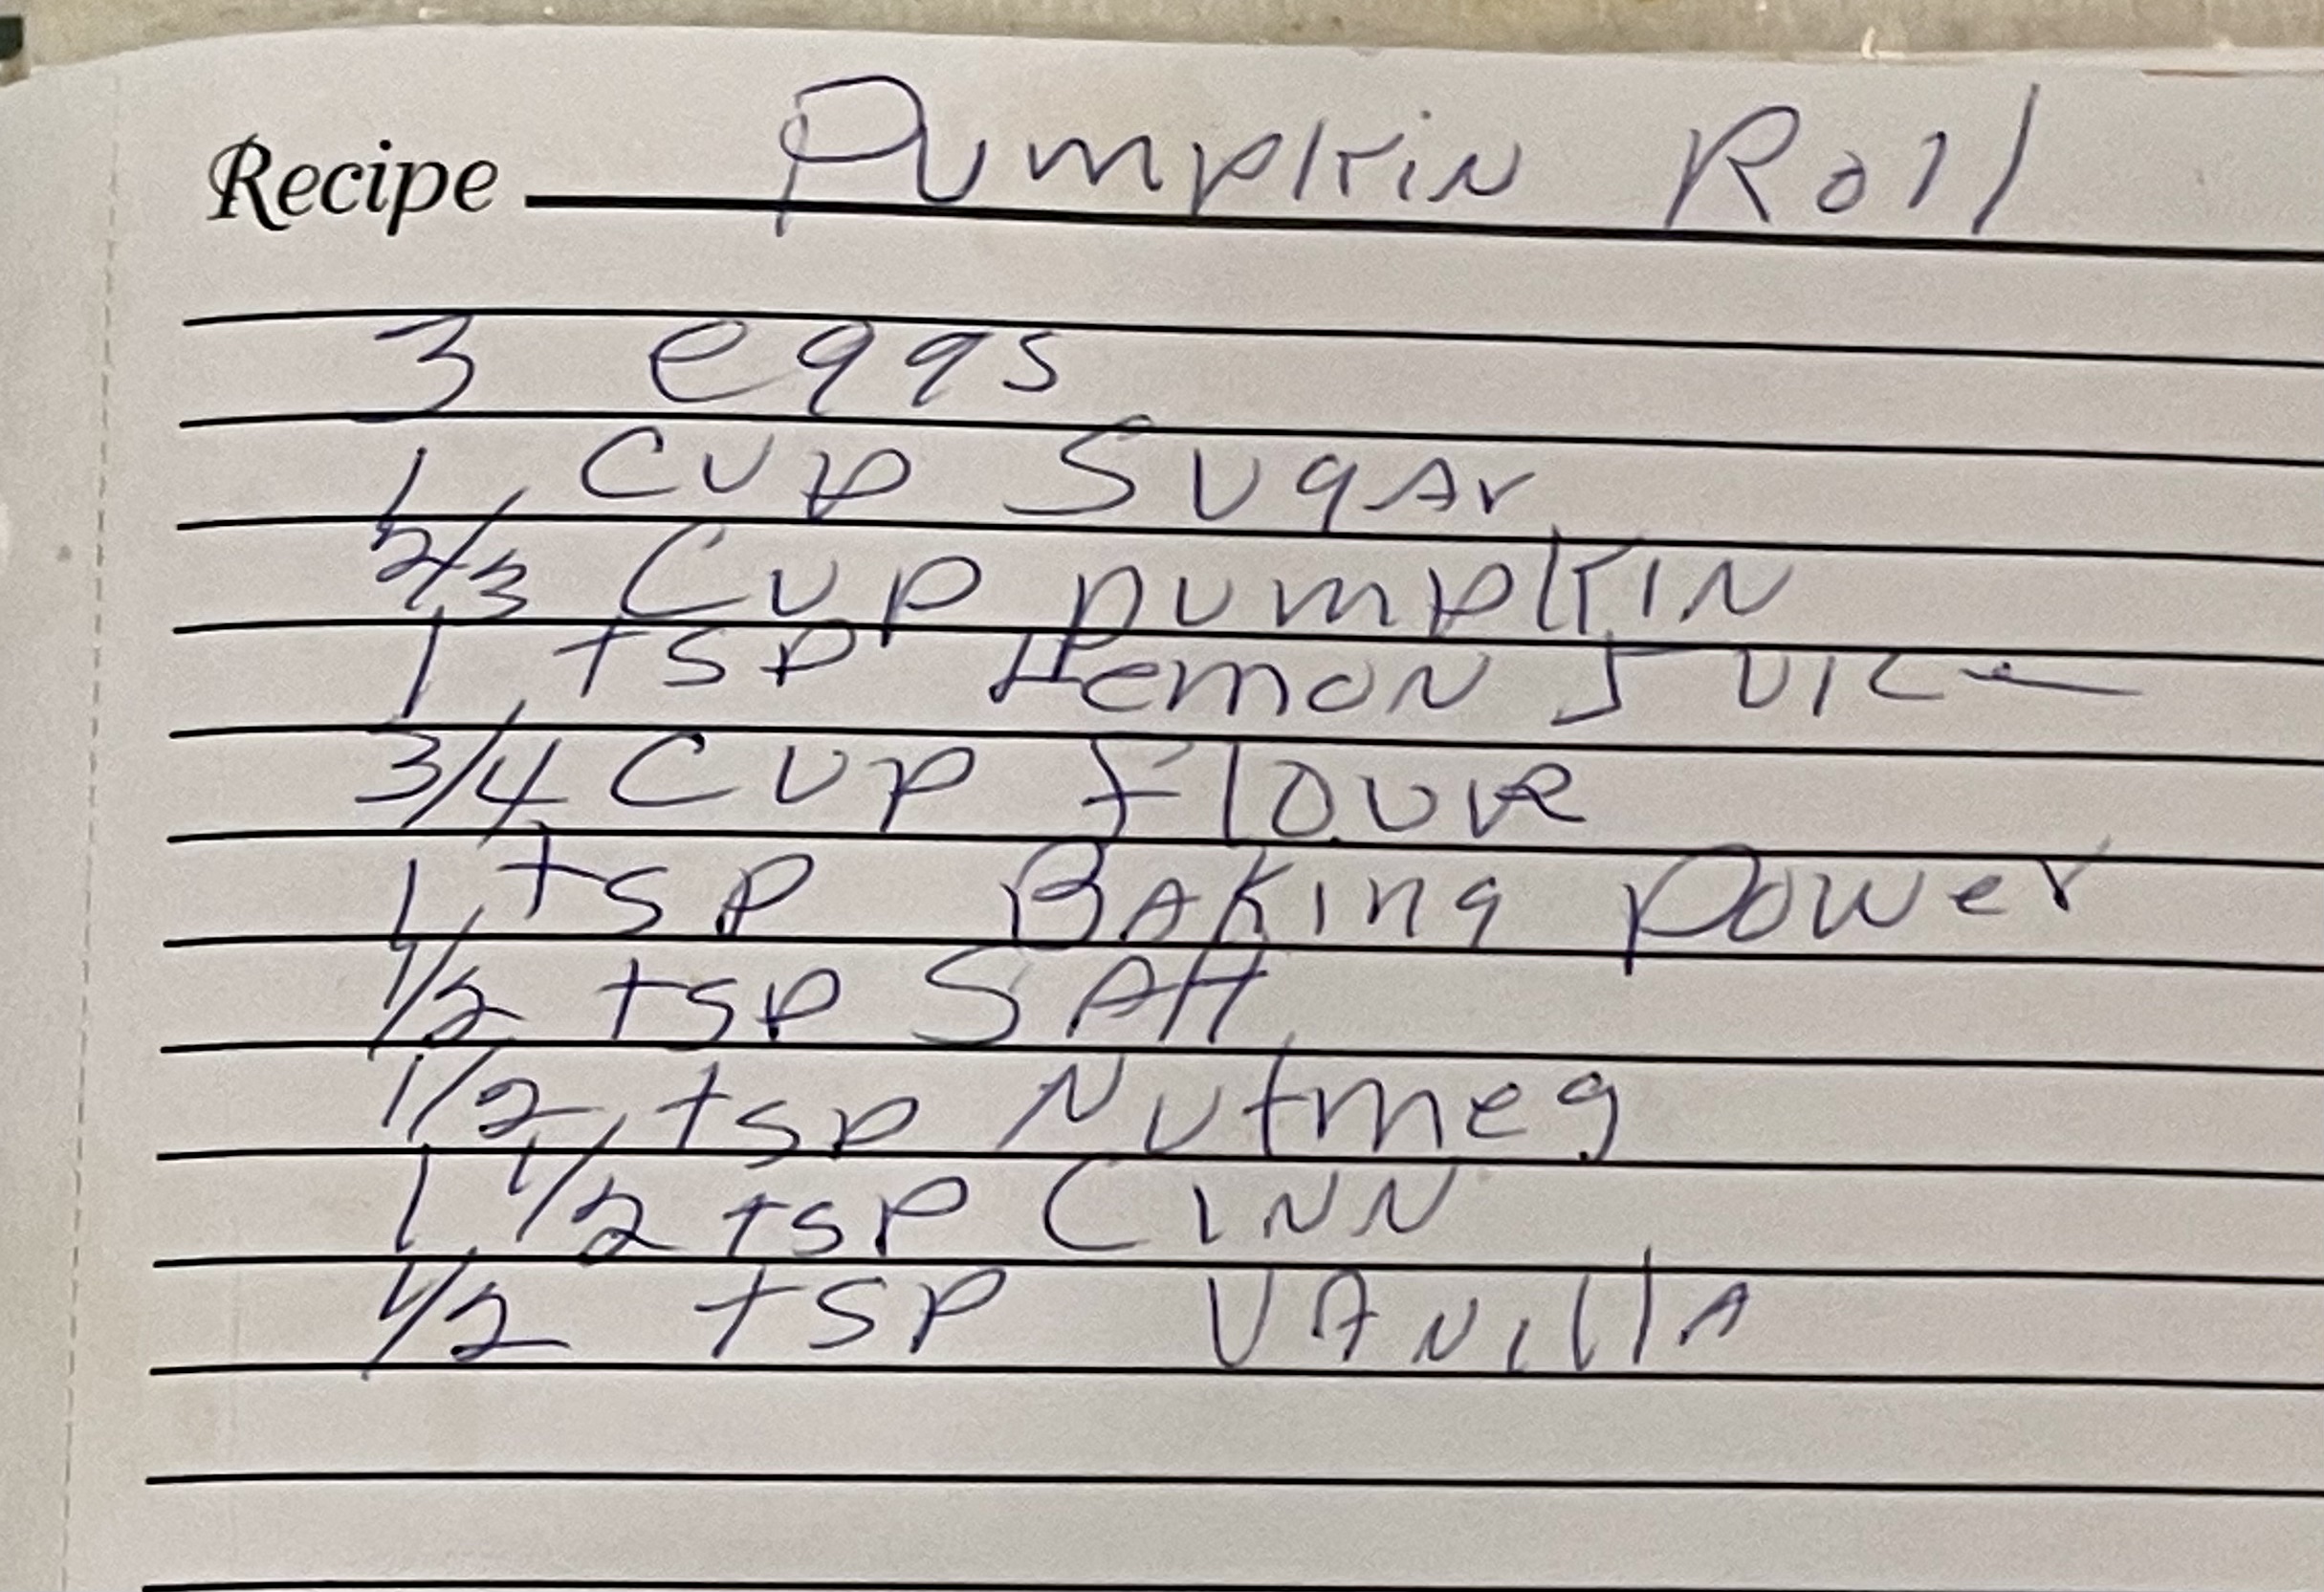 Recipe Pumpkin Roll
3 eggs
1 Cup Sugar
2/3 Cup pumpkin
1 tsp Lemon Juice
3/4 Cup flour
1 tsp Baking Power
1/2 tsp SAlt
1/2 tsp Nutmeg
1 1/2 tsp Cinn
1/2 tsp VAnillA